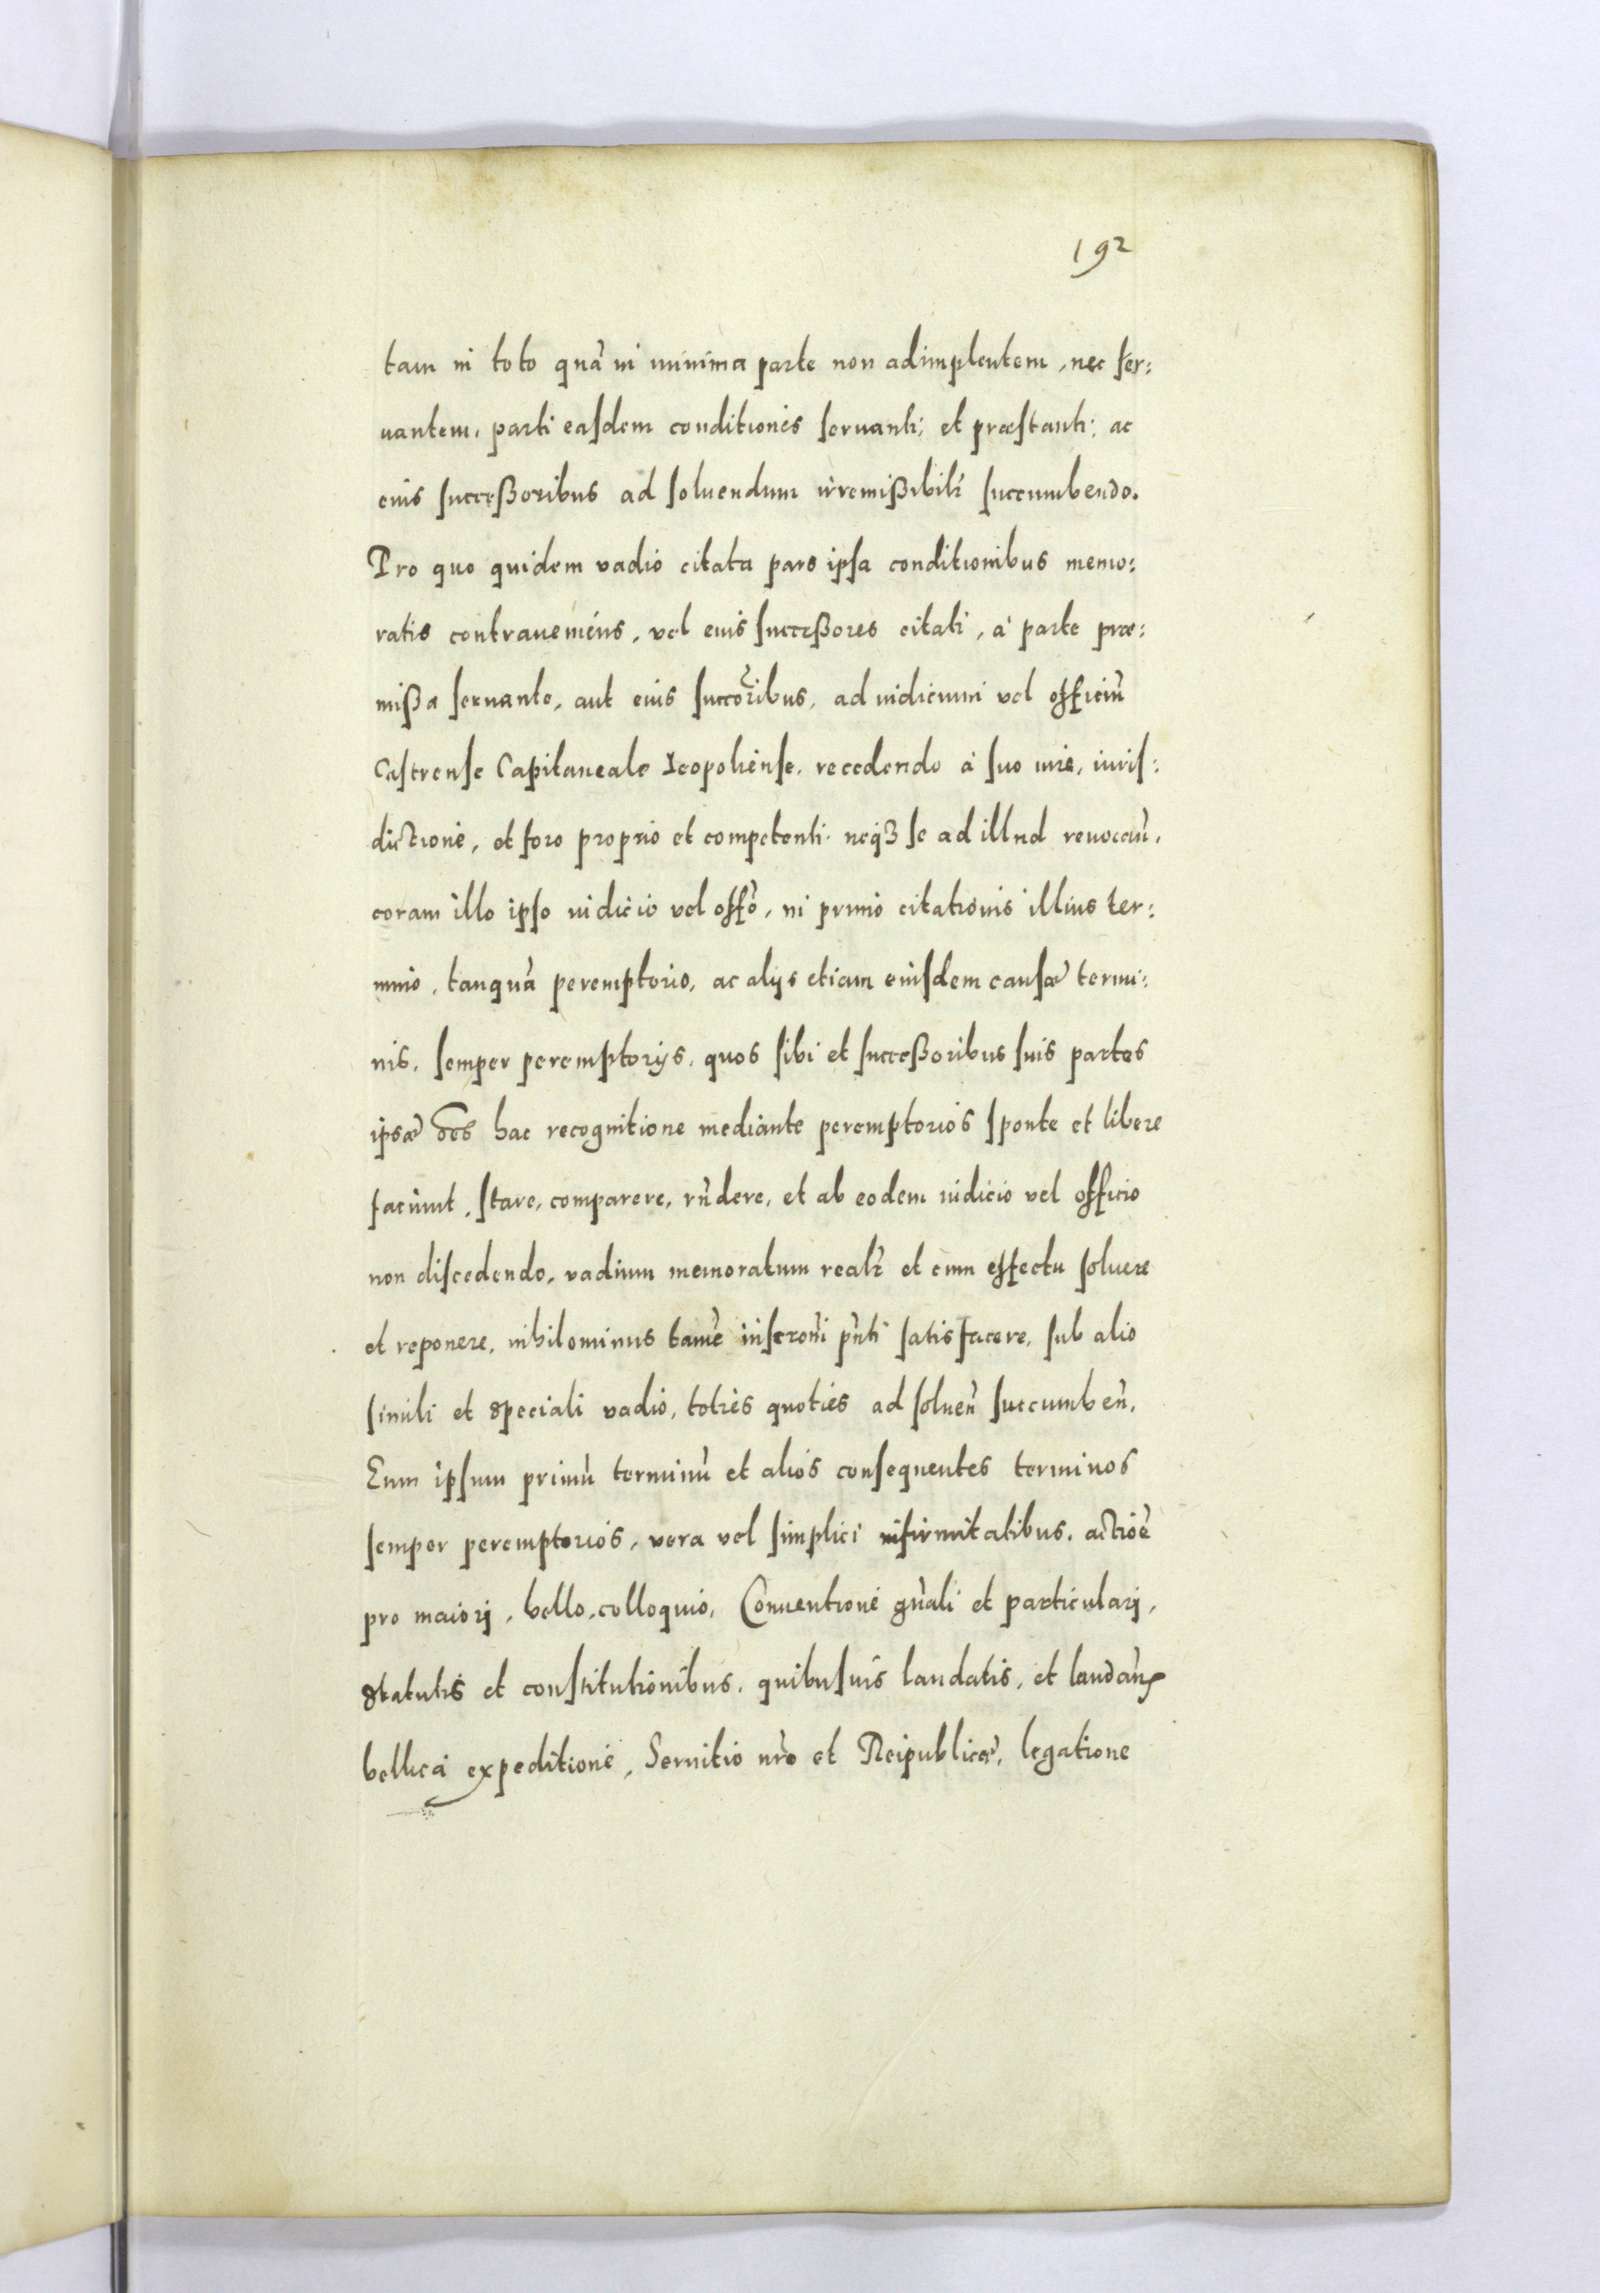 192
tam in toto quã in minima parte non adimplentem, nec ser:
uantem, parti easdem conditiones seruanti, et præstanti, ac
eius successoribus ad soluendum irremißibilr succumbendo.
Pro quo quidem vadio citata pars ipsa conditionibus memo:
ratis contraueniens, vel eius succeßores citati, à parte præ:
mißa seruante, aut eius succõribus, ad iudicium vel officiũ
Castrense Capitaneale Leopoliense, recedendo à suo iure, iuris:
dictione, et foro proprio et competenti neqȝ se ad illud reuocaũ,
coram illo ipso iudicio vel offõ, in primo citationis illius ter:
mino, tanquã peremptorio, ac alijs etiam eiusdem causæ termi:
nis, semper peremptorijs, quos sibi et succeßoribus suis partes
ipsæ oẽs hac recognitione mediante peremptorios sponte et libere
faciunt, stare, comparere, rñdere, et ab eodem iudicio vel officio
non discedendo, vadium memoratum realr et cum effectu soluere
et reponere, nihilominus tamẽ inscroñi pñti satisfacere, sub alio
simili et speciali vadio, toties quoties ad soluen̄ succumben̄,
Eum ipsum primũ terminũ et alios consequentes terminos
semper peremptorios, vera vel simplici infirmitatibus, actiõe
pro maiori, bello, colloquio, Conuentione gñali et particulari,
statutis et constitutionibus, quibusuis laudatis, et laudan̄
bellica expeditione, Seruitio nr̃o et Reipublicæ, legatione